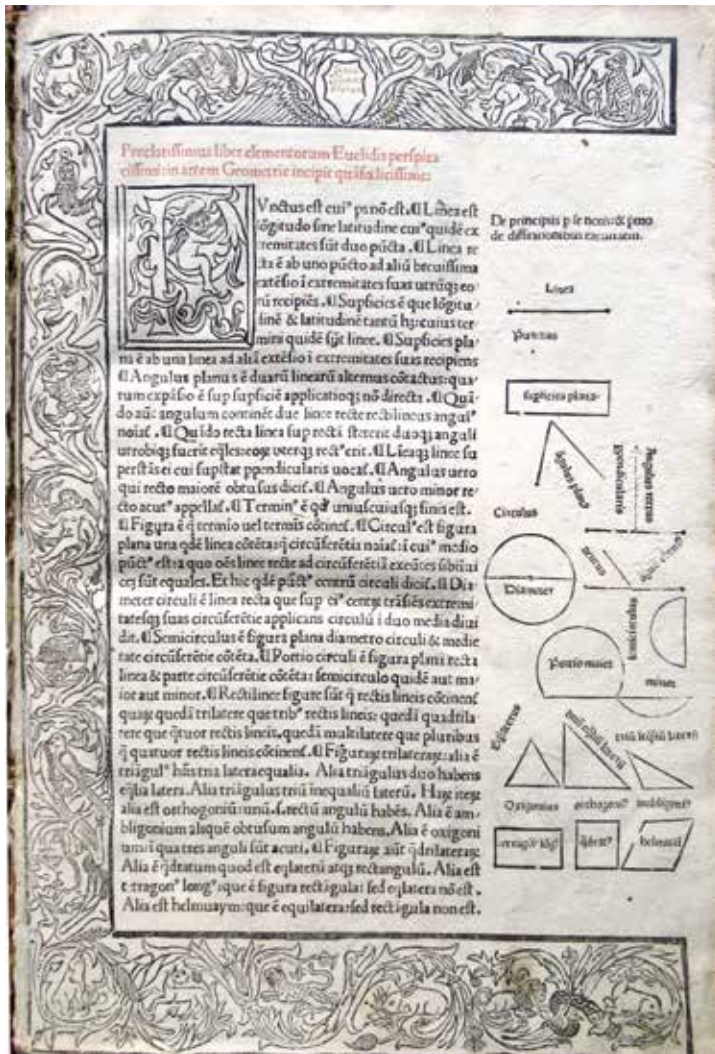 Preclarissimus liber elementorum Euclidis perspica
cissimi: in artem Geometrie incipit quãfoelicissime:
Vnctus est cuiꝰ ps nõ est. ¶ Linea est
lõgitudo sine latitudine cuiꝰ quidẽ ex
tremitates sũt duo pũcta. ¶ Linea re
cta ẽ ab uno pũcto ad aliũ breuissima
extẽsio ĩ extremitates suas utrũqꝫ eo
rũ recipiẽs. ¶ Supficies ẽ que lõgitu
dinẽ & latitudinẽ tantũ hꝫ: cuius ter
mini quidẽ sũt linee. ¶ Supficies pla
na ẽ ab una linea ad aliã extẽsio ĩ extremitates suas recipiens
¶ Angulus planus ẽ duarũ linearũ alternus cõtactus: qua
rum expãsio ẽ sup supficiẽ applicatioqꝫ nõ directa. ¶ Quã
do aũt angulum continẽt due linee recte rectilineus angulꝰ
noiaĩ. ¶ Qũido recta linea sup rectã steterit duoqꝫ anguli
utrobiqꝫ fuerit eq̃les: eoꝝ uterqꝫ rectꝰ erit. ¶ Lĩeaqꝫ linee su
perstãs ei cui supstat ppendicularis uocaĩ. ¶ Angulus uero
qui recto maiorẽ obtusus diciĩ. ¶ Angulus uero minor re
cto acutꝰ appellaĩ. ¶ Terminꝰ ẽ qď uniuscuiusqꝫ finis est.
¶ Figura ẽ q̃ termĩo uel termĩs cõtineĩ. ¶ Circulꝰ est figura
plana una qďẽ linea cõtẽta: q̃ circũferẽtia noiaĩ: ĩ cuiꝰ medio
pũctꝰ est: a quo oẽs linee recte ad circũferẽtiã exeũtes sibiĩui
cẽ sũt equales. Et hic qďẽ pũctꝰ centrũ circuli diciĩ. ¶ Dia
meter circuli ẽ linea recta que sup eiꝰ centꝝ trãsiẽs extremi
tatesqꝫ suas circũferẽtie applicans circulũ ĩ duo media diui
dit. ¶ Semicirculus ẽ figura plana diametro circuli & medie
tate circũferẽtie cõtẽta. ¶ Portio circuli ẽ figura plana recta
linea & parte circũferẽtie cõtẽta: semicirculo quidẽ aut ma
ior aut minor. ¶ Rectilinee figure sũt q̃ rectis lineis cõtinenĩ
quaꝝ quedã trilatere que tribꝰ rectis lineis: quedã quadrila
tere que q̃tuor rectis lineis. quedã multilatere que pluribus
q̃ quatuor rectis lineis cõtinenĩ. ¶ Figuraꝝ trilateraꝝ: alia ẽ
triãgulꝰ hñs tria latera equalia. Alia triãgulus duo habens
eq̃lia latera. Alia triãgulus triũ inequaliũ laterũ. Haꝝ iteꝝ
alia est orthogoniũ: unũ .s. rectũ angulũ habẽs. Alia ẽ am
bligonium aliquẽ obtusum angulũ habens. Alia ẽ oxigoni
um: ĩ qua tres anguli sũt acuti. ¶ Figuraꝝ aũt q̃drilateraꝝ
Alia ẽ q̃dratum quod est eq̃laterũ atqꝫ rectangulũ. Alia est
tetragonꝰ longꝰ: que ẽ figura rectãgula: sed eq̃latera nõ est.
Alia est helmuaym: que ẽ equilatera: sed rectãgula non est.
De principiis p se notis: & pmo
de diffinitionibus earundem.
Linea
Punctus
supficies plana
Circulus
Diameter
Portio maior
minor
Oxigonius